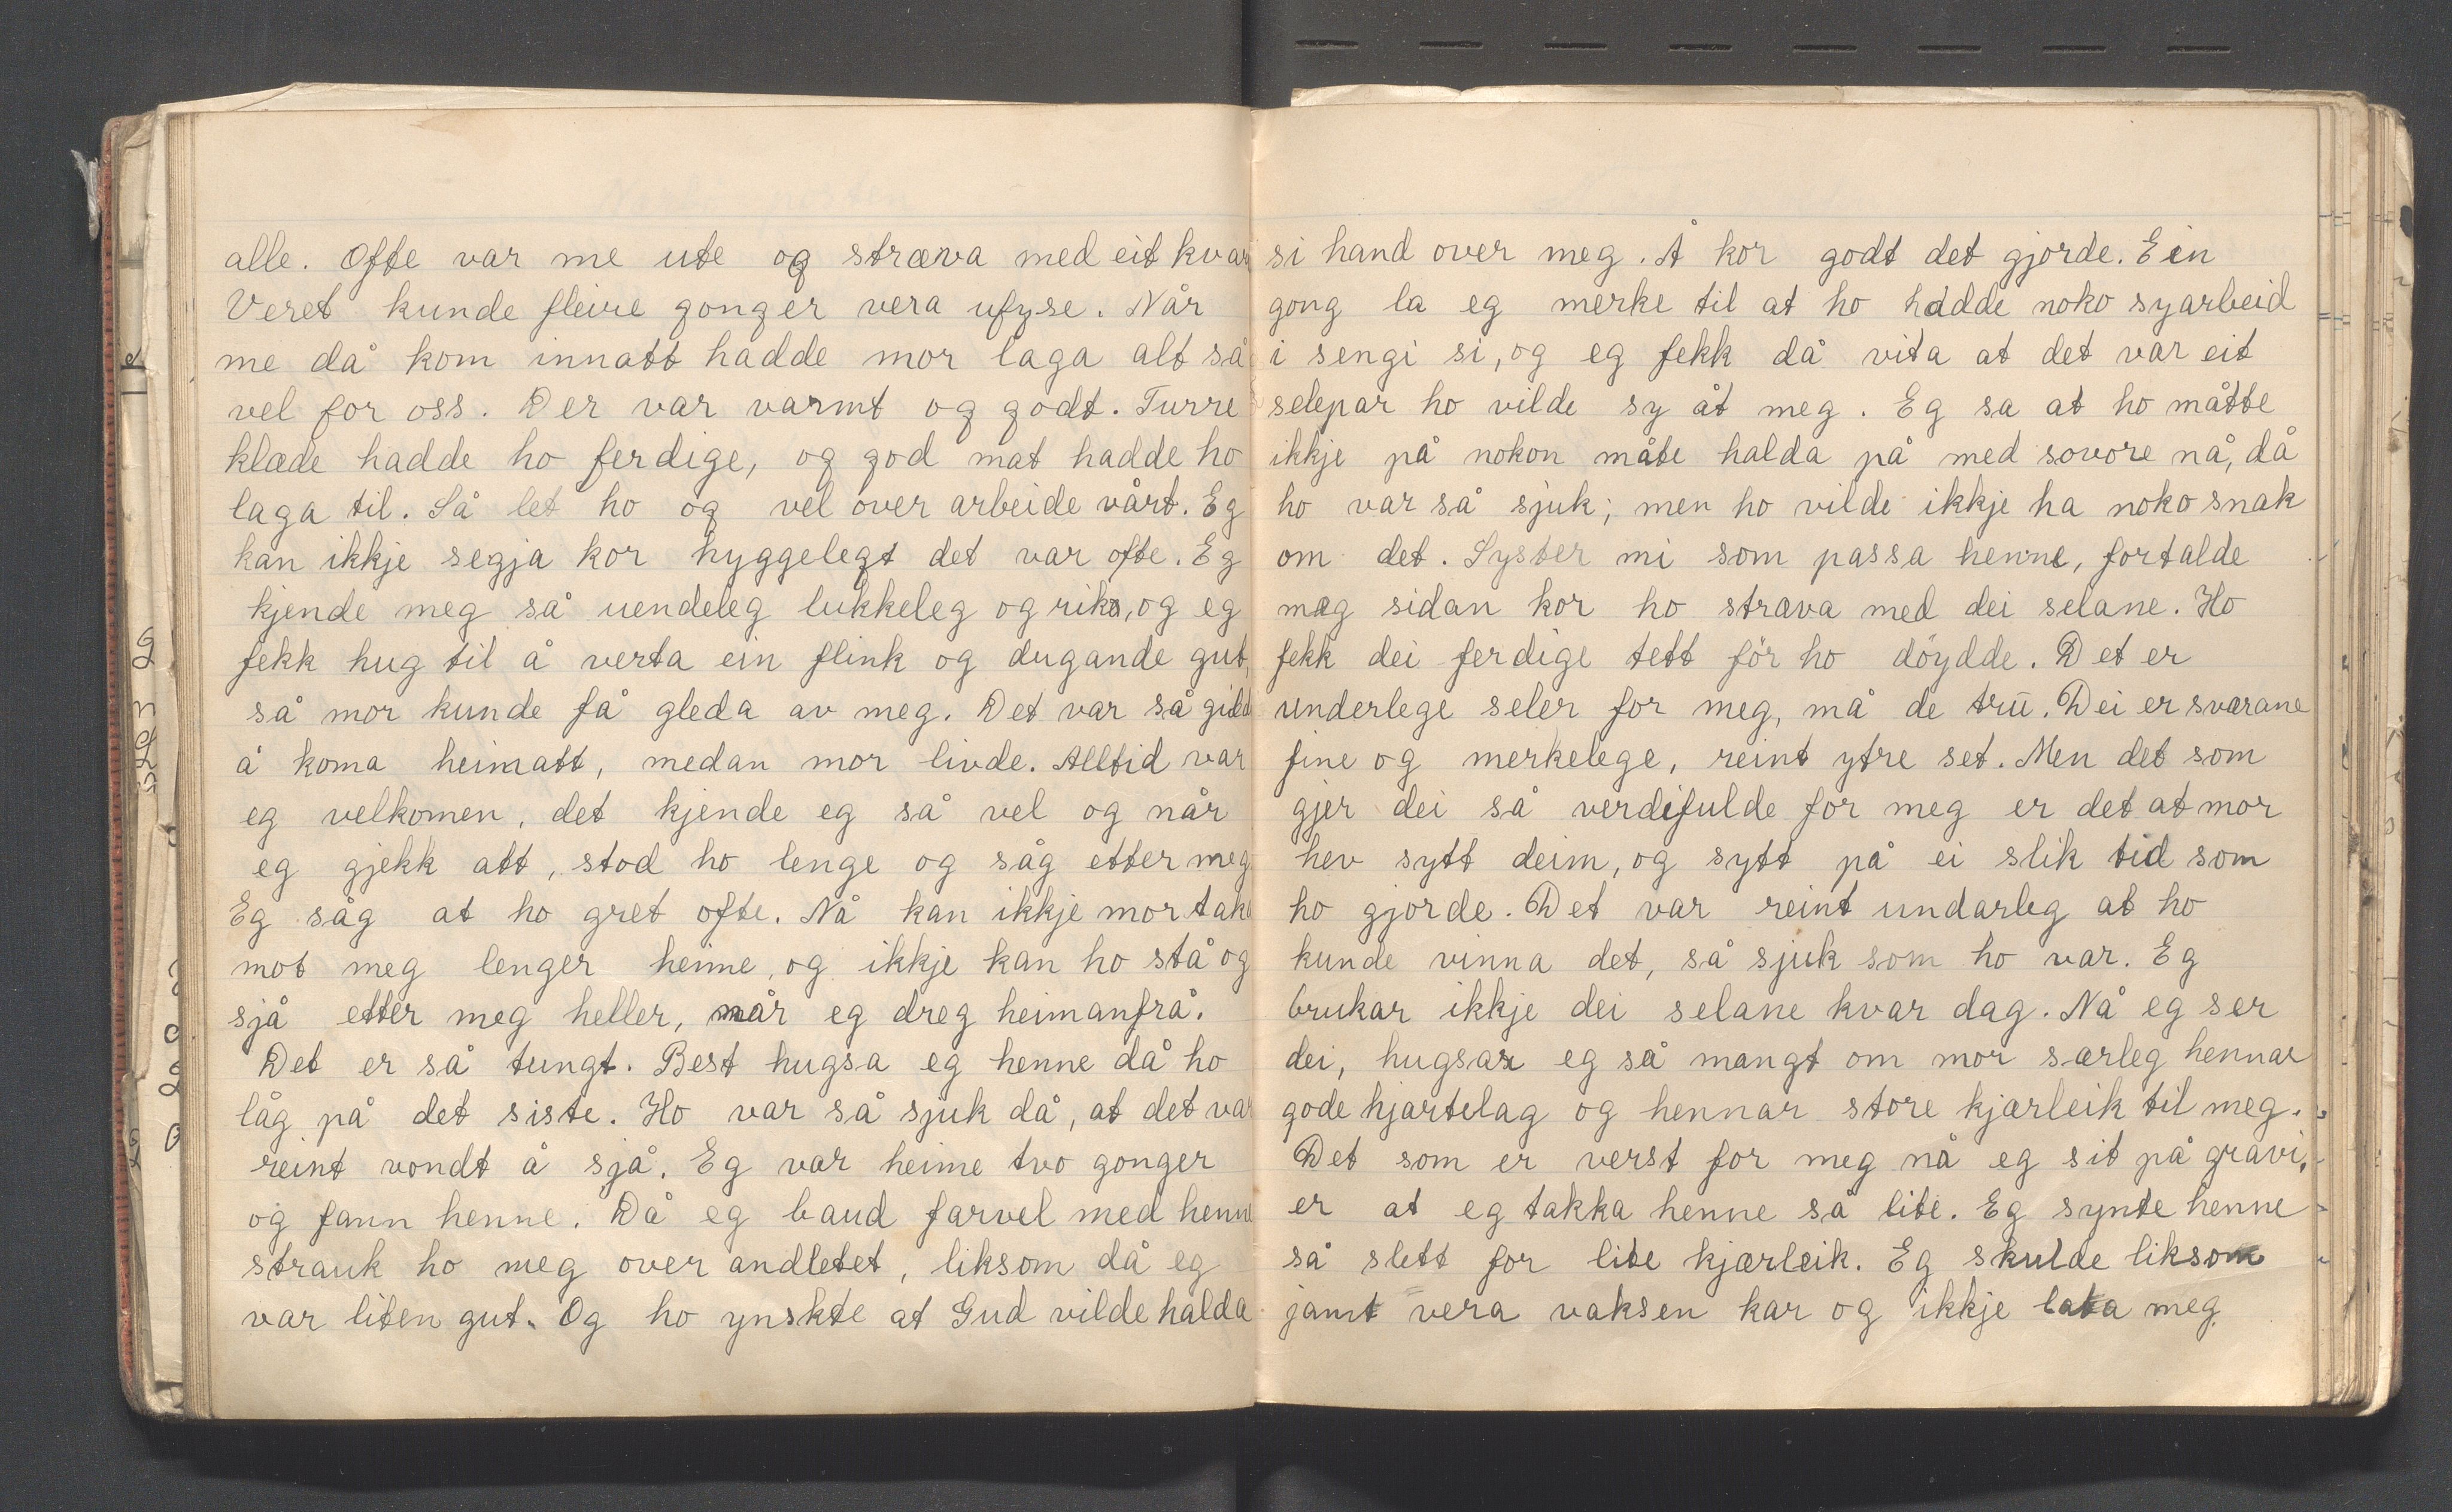 alle. Ofte var me ute og stræva med eit kvar
Veret kunde fleire gonger vera ufyse. Når
me då kom innatt hadde mor laga alt så
vel for oss. Der var varmt og godt. Turre
klæde hadde ho ferdige, og god mat hadde ho
laga til. Så let ho og vel over arbeide vårt. Eg
kan ikkje segja kor hyggelegt det var ofte. Eg
kjende meg så uendeleg lukkeleg og rik, og eg
fekk hug til å verta ein flink og dugande gut,
så mor kunde få gleda av meg. Det var så gildt
å koma heimatt, medan mor livde. Alltid var
eg velkomen, det kjende eg så vel og når
eg gjekk att, stod ho lenge og såg etter meg
Eg såg at ho gret ofte. Nå kan ikkje mor taka
mot meg lenger heime, og ikkje kan ho stå og
sjå etter meg heller, når eg dreg heimanfrå.
Det er så tungt. Best hugsa eg henne då ho
låg på det siste. Ho var så sjuk då, at det var
reint vondt å sjå. Eg var heime tvo gonger
og fann henne. Då eg baud farvel med henne
strauk ho meg over andletet, liksom då eg
var liten gut. Og ho ynskte at Gud vilde halda
si hand over meg. Å kor godt det gjorde. Ein
gong la eg merke til at ho hadde noko syarbeid
i sengi si, og eg fekk då vita at det var eit
selepar ho vilde sy åt meg. Eg sa at ho måtte
ikkje på nokon måte halda på med sovore nå, då
ho var så sjuk; men ho vilde ikkje ha noko snak
om det. Syster mi som passa henne, fortalde
meg sidan kor ho stræva med dei selane. Ho
fekk dei ferdige tett för ho döydde. Det er
underlege seler for meg, må de trū. Dei er sværane
fine og merkelege, reint ytre set. Men det som
gjer dei så verdifulde for meg er det at mor
hev sytt deim, og sytt på ei slik tid som
ho gjorde. Det var reint undarleg at ho
kunde vinna det, så sjuk som ho var. Eg
brukar ikkje dei selane kvar dag. Nå eg ser
dei, hugsar eg så mangt om mor særleg hennar
gode hjartelag og hennar store kjærleik til meg.
Det som er verst for meg nå eg sit på gravi,
er at eg takka henne så lite. Eg synte henne
så slett for lite kjærleik. Eg skulde liksom
jamt vera vaksen kar og ikkje lata meg